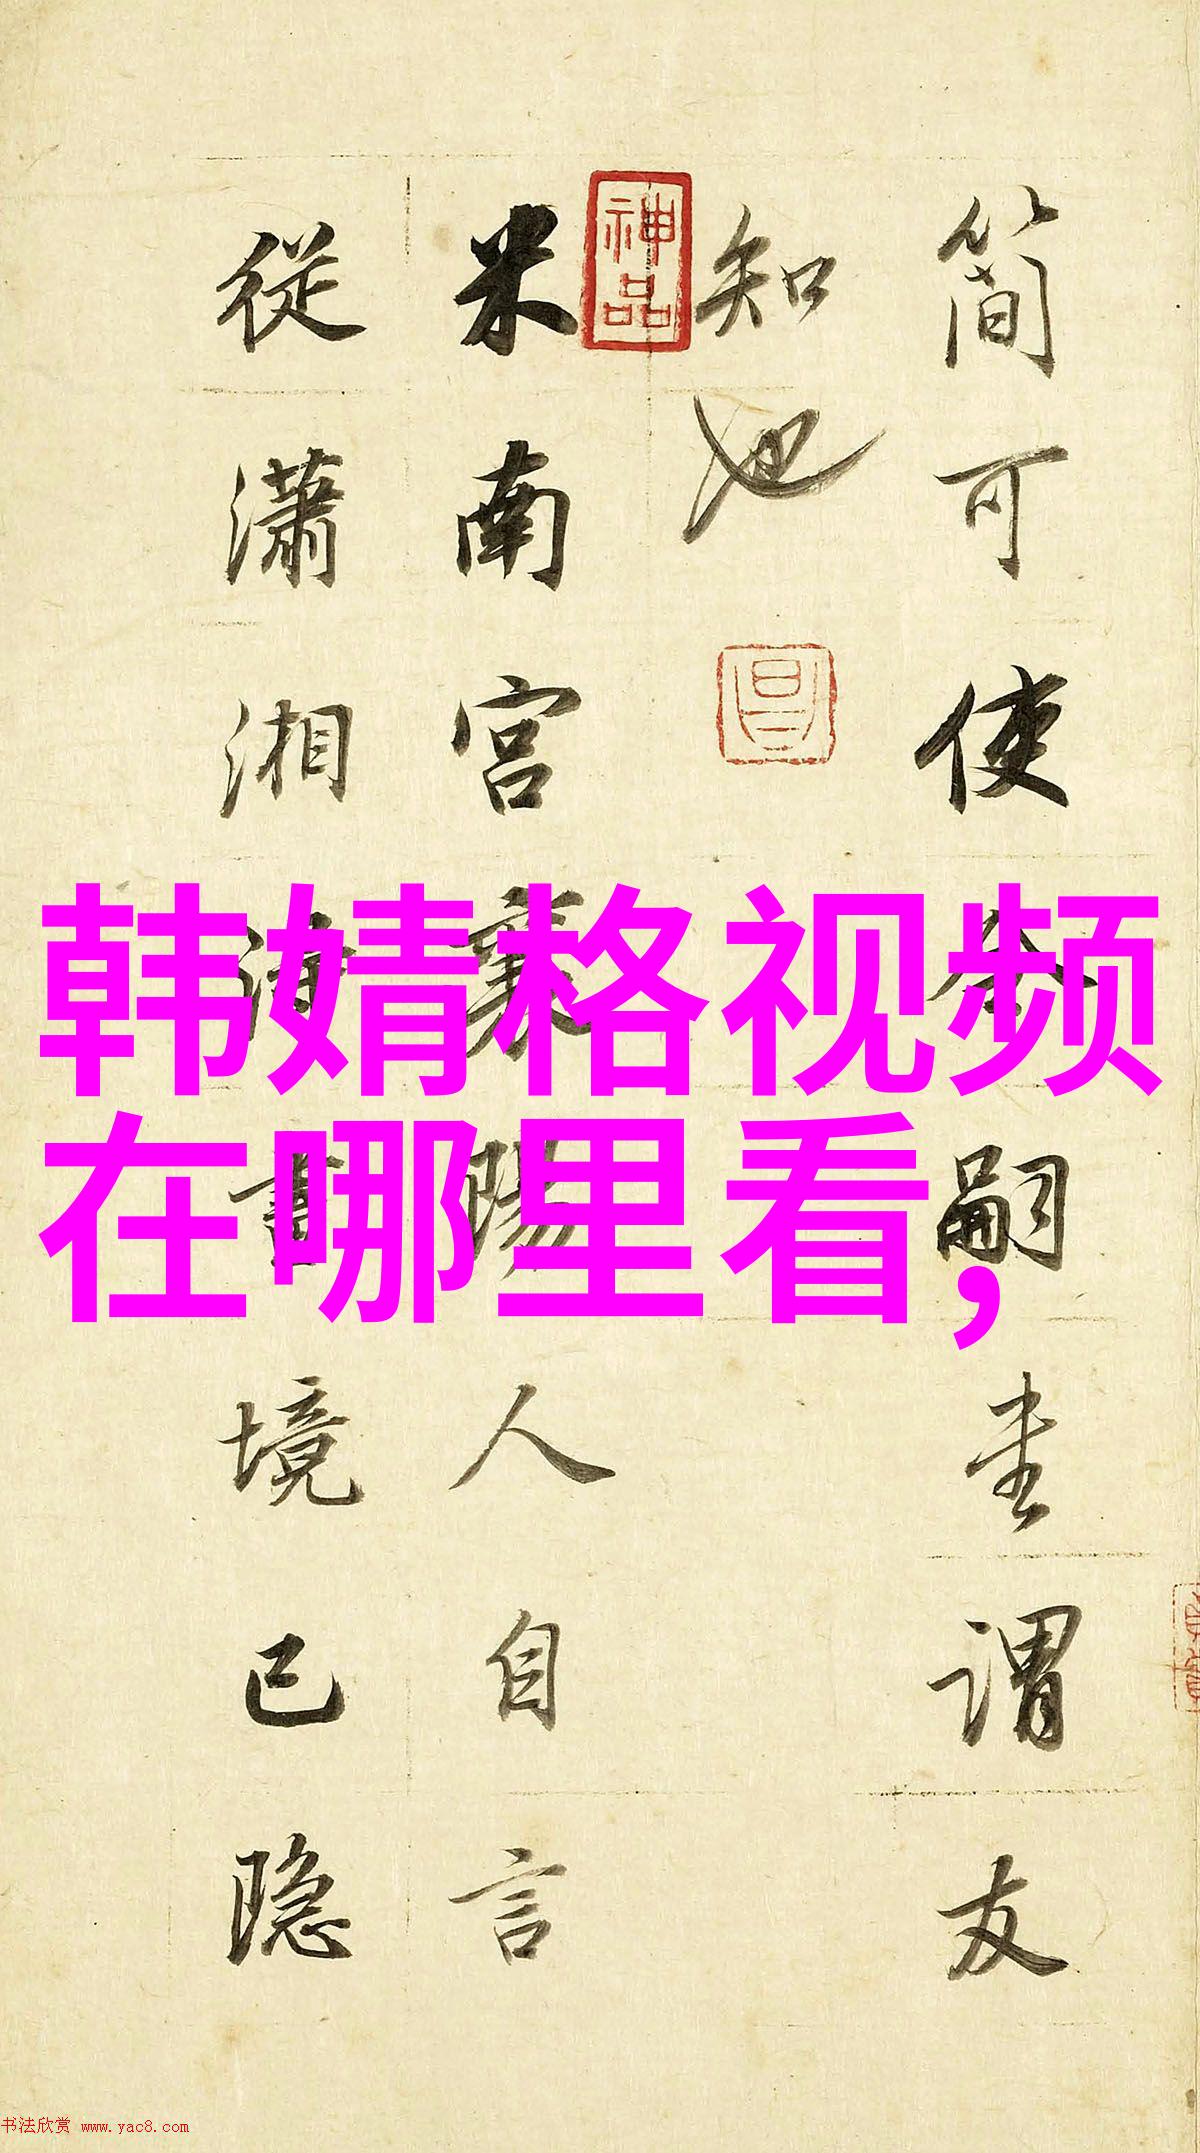 簡可使令嗣畫謂友
知也
神品
昌
米南宮襄陽人自言
從瀟湘得畫境已隐
韩婧格视频
在哪里看,
书法欣赏 www.yac8.com